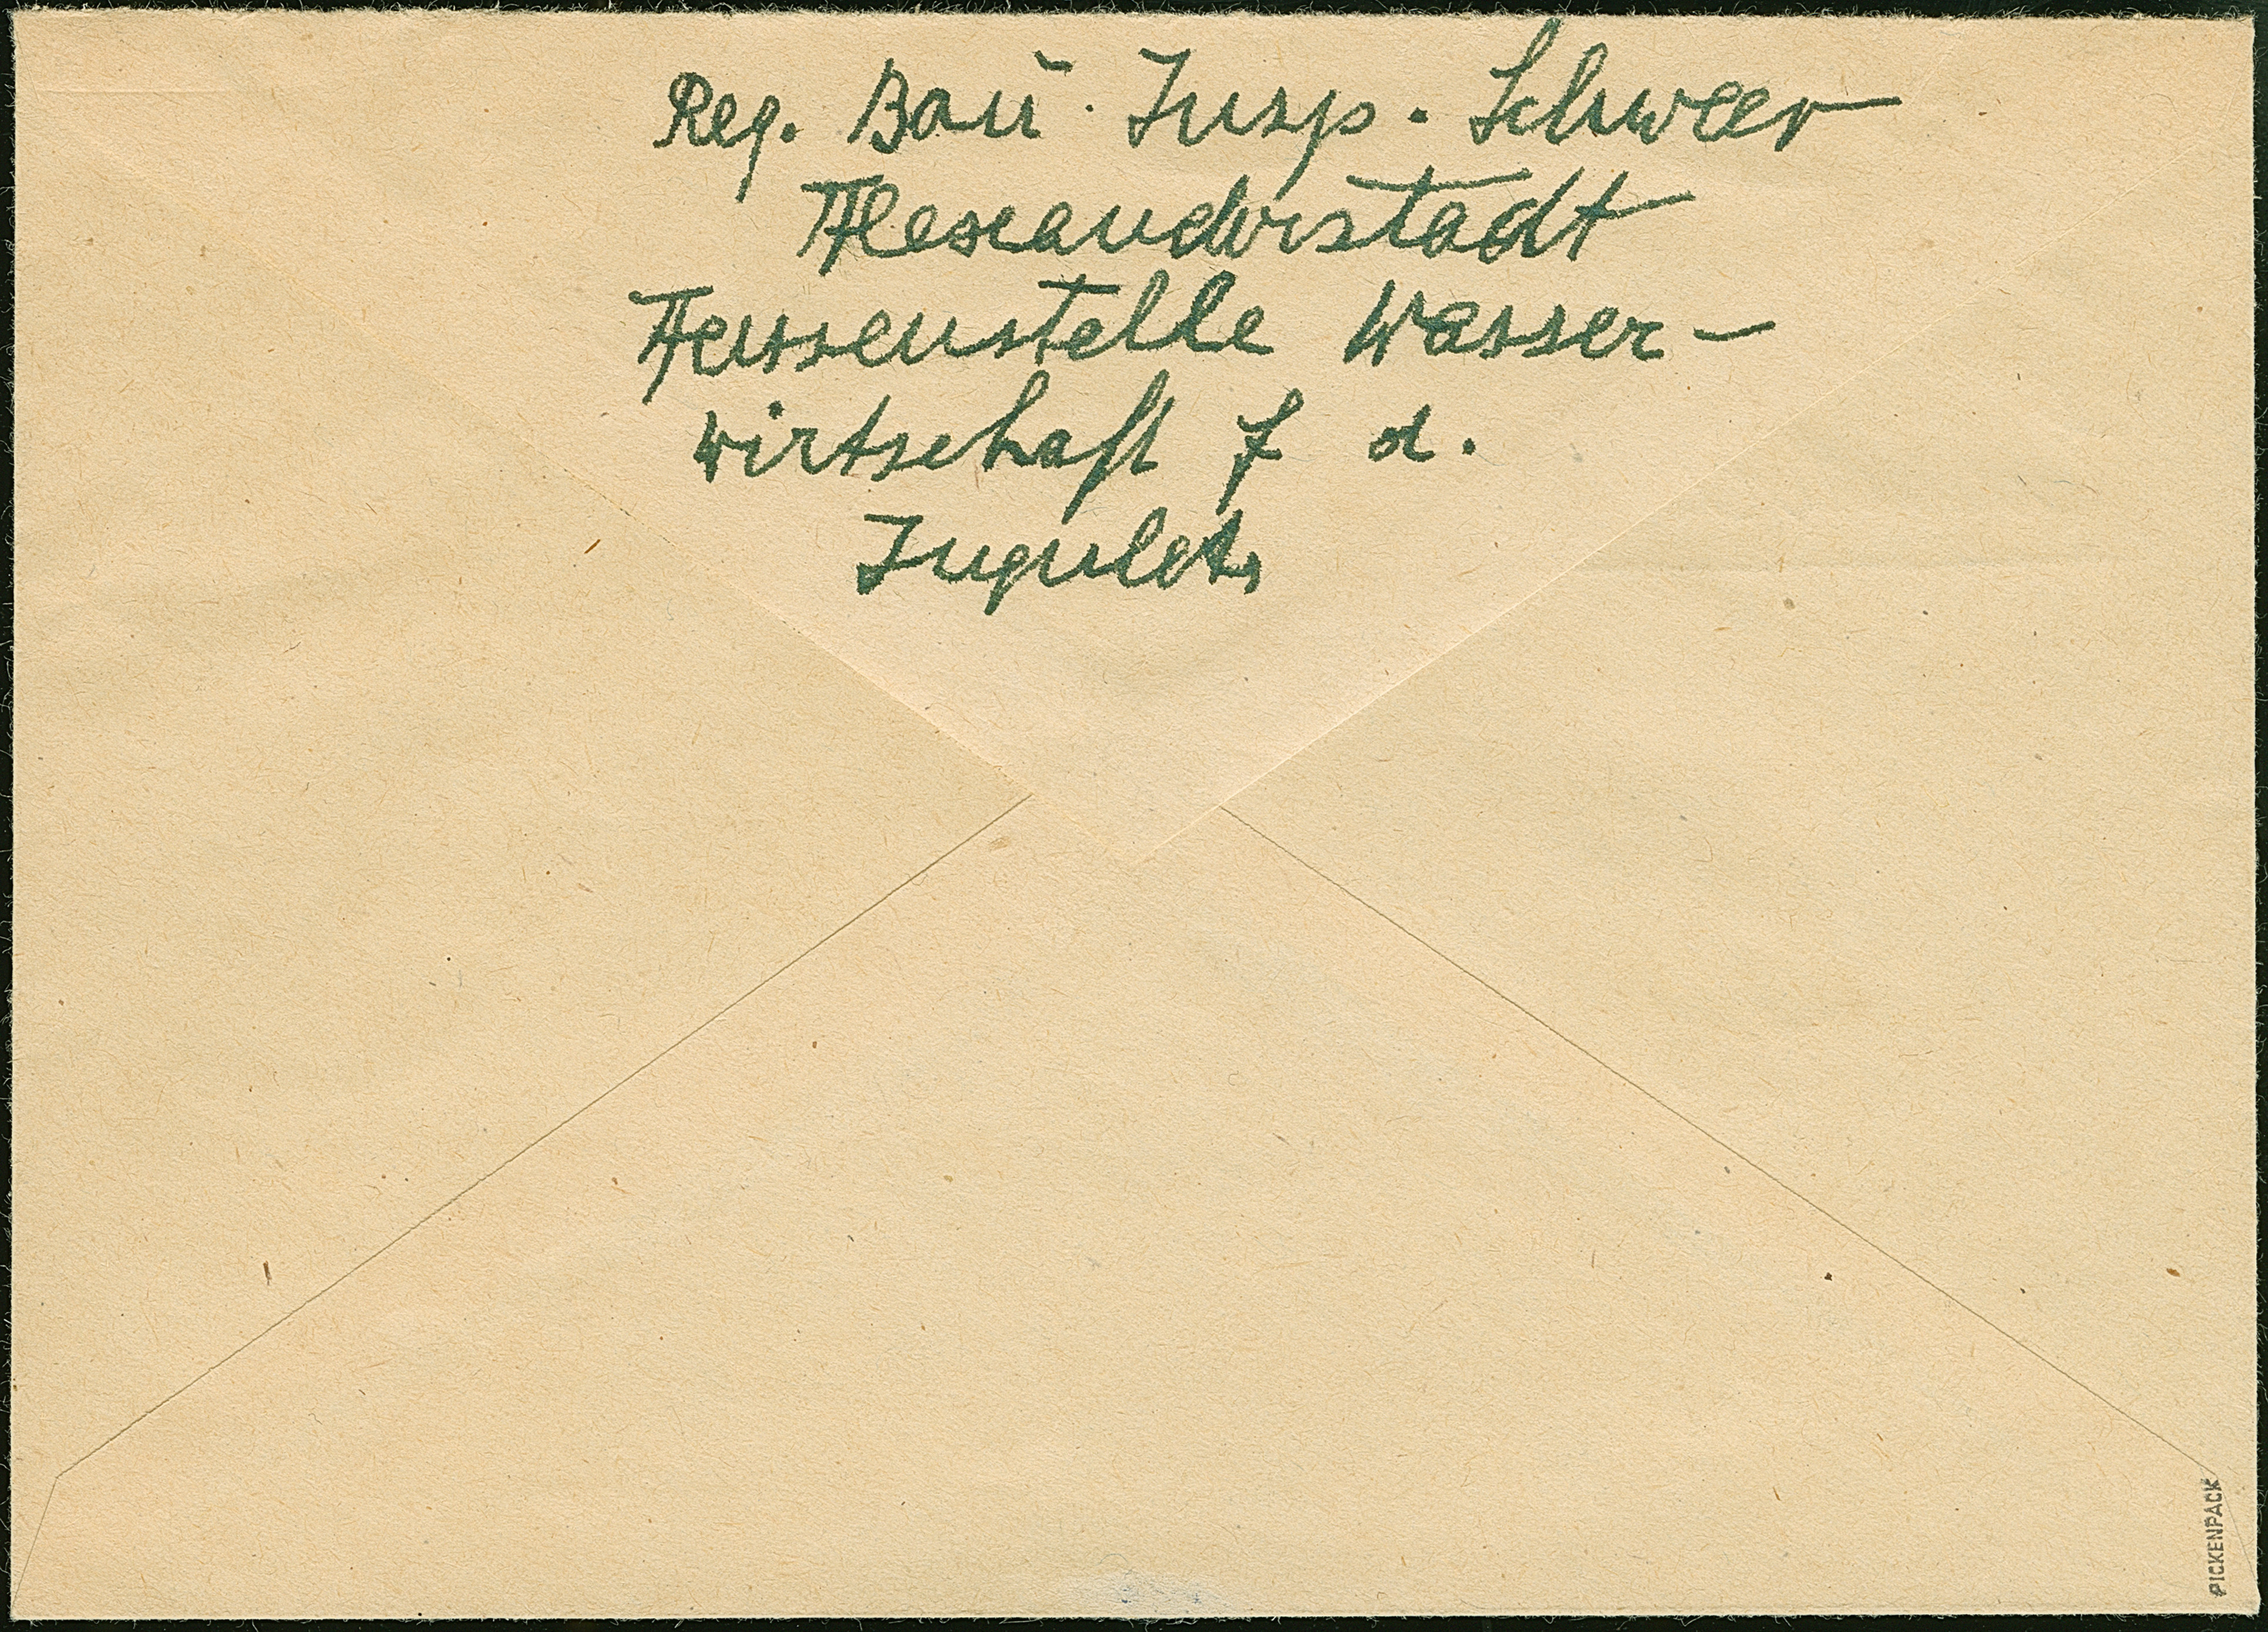 Reg. Bau. Insp. Schweer
Alexanderstadt
Aussenstelle Wasser-
wirtschaft f d.
Ingulets
PICKENPACK